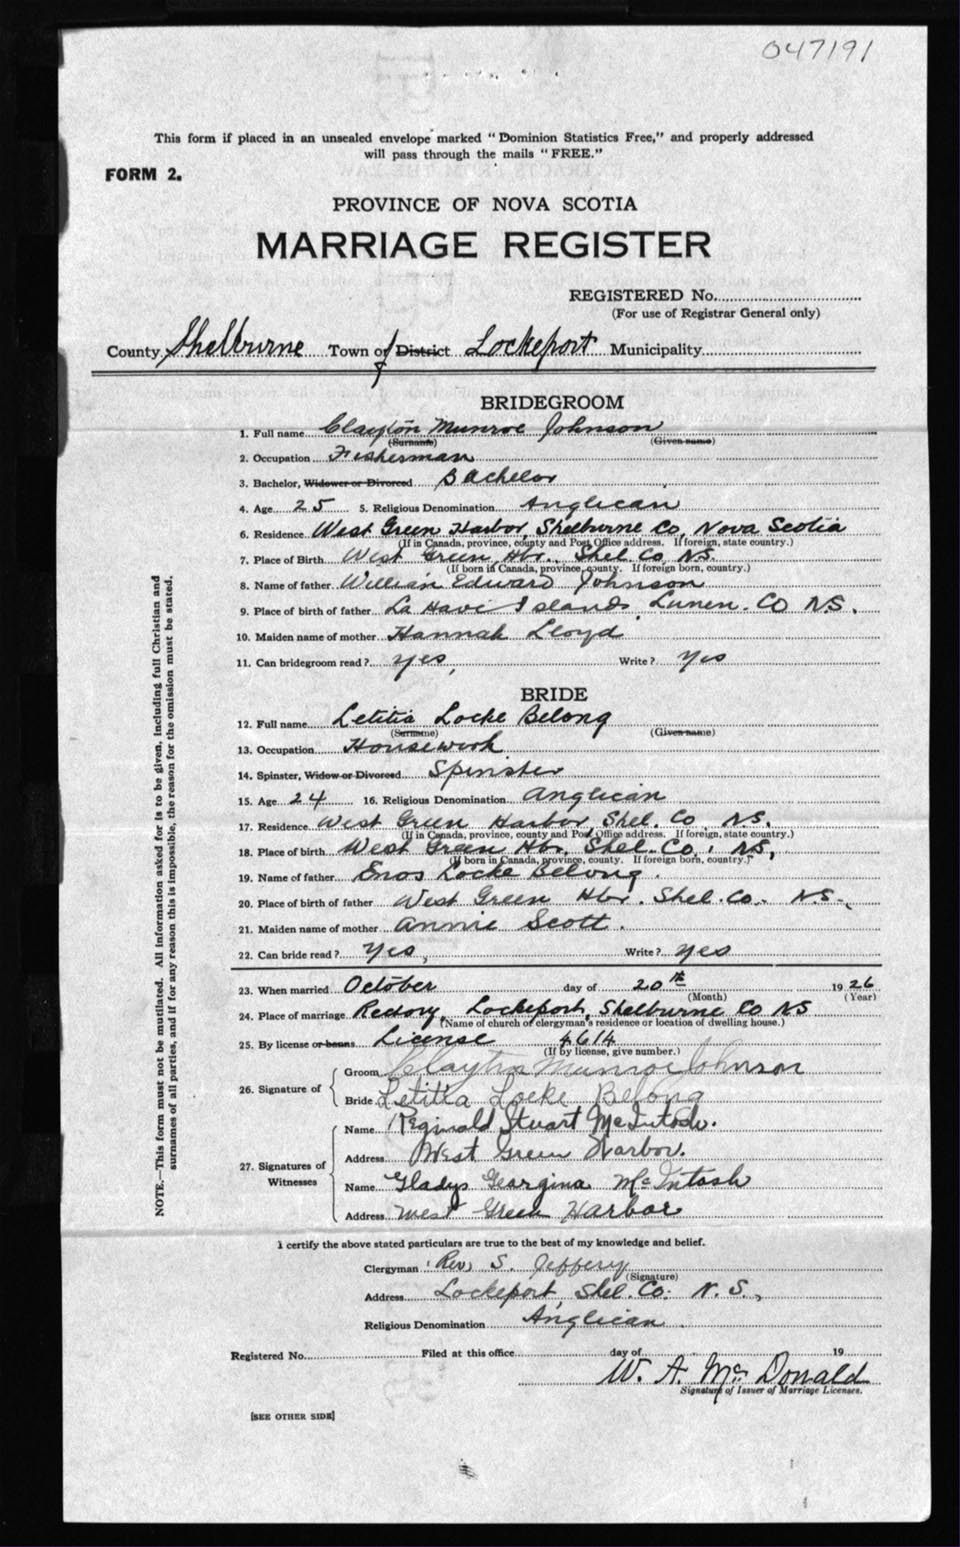 047191
This form if placed in an unsealed envelope marked "Dominion Statistics Free," and properly addressed
will pass through the mails "FREE."
FORM 2.
PROVINCE OF NOVA SCOTIA
MARRIAGE REGISTER
REGISTERED No.
(For use of Registrar General only)
County Shelburne Town of District Lockeport Municipality
BRIDEGROOM
1. Full name Clayton Munroe Johnson
(Surname) (Given name)
2. Occupation Fisherman
3. Bachelor, Widower or Divorced Bachelor
4. Age 25 5. Religious Denomination Anglican
6. Residence West Green Harbor, Shelburne Co, Nova Scotia
(If in Canada, province, county and Post Office address. If foreign, state country.)
7. Place of Birth West Green Hbr., Shel. Co, N.S.
(If born in Canada, province, county. If foreign born, country.)
8. Name of father William Edward Johnson
9. Place of birth of father La Have Islands, Lunen. Co N.S.
10. Maiden name of mother Hannah Lloyd
11. Can bridegroom read? Yes, Write? Yes
BRIDE
12. Full name Letitia Locke Belong
(Surname) (Given name)
13. Occupation Housework
14. Spinster, Widow or Divorced Spinster
15. Age 24 16. Religious Denomination Anglican
17. Residence West Green Harbor Shel. Co, N.S.
(If in Canada, province, county and Post Office address. If foreign, state country.)
18. Place of birth West Green Hbr. Shel. Co., N.S,
(If born in Canada, province, county. If foreign born, country.)
19. Name of father Enos Locke Belong.
20. Place of birth of father West Green Hbr. Shel. Co. N.S.
21. Maiden name of mother Annie Scott.
22. Can bride read? Yes, Write? Yes
23. When married October day of 20th 1926
(Month) (Year)
24. Place of marriage Rectory, Lockeport, Shelburne Co NS
(Name of church or clergyman's residence or location of dwelling house.)
25. By license or banns License 4614
(If by license, give number.)
26. Signature of
Groom Clayton Munroe Johnson
Bride Letitia Locke Belong
27. Signatures of Witnesses
Name Reginald Stuart McIntosh.
Address West Green Harbor.
Name Gladys Georgina McIntosh
Address West Green Harbor
I certify the above stated particulars are true to the best of my knowledge and belief.
Clergyman (Rev) S. Jeffery
(Signature)
Address Lockeport, Shel. Co. N.S.,
Religious Denomination Anglican.
Registered No. Filed at this office day of 19
W. A. McDonald
Signature of Issuer of Marriage Licenses.
[SEE OTHER SIDE]
NOTE.—This form must not be mutilated. All information asked for is to be given, including full Christian and
surnames of all parties, and if for any reason this is impossible, the reason for the omission must be stated.